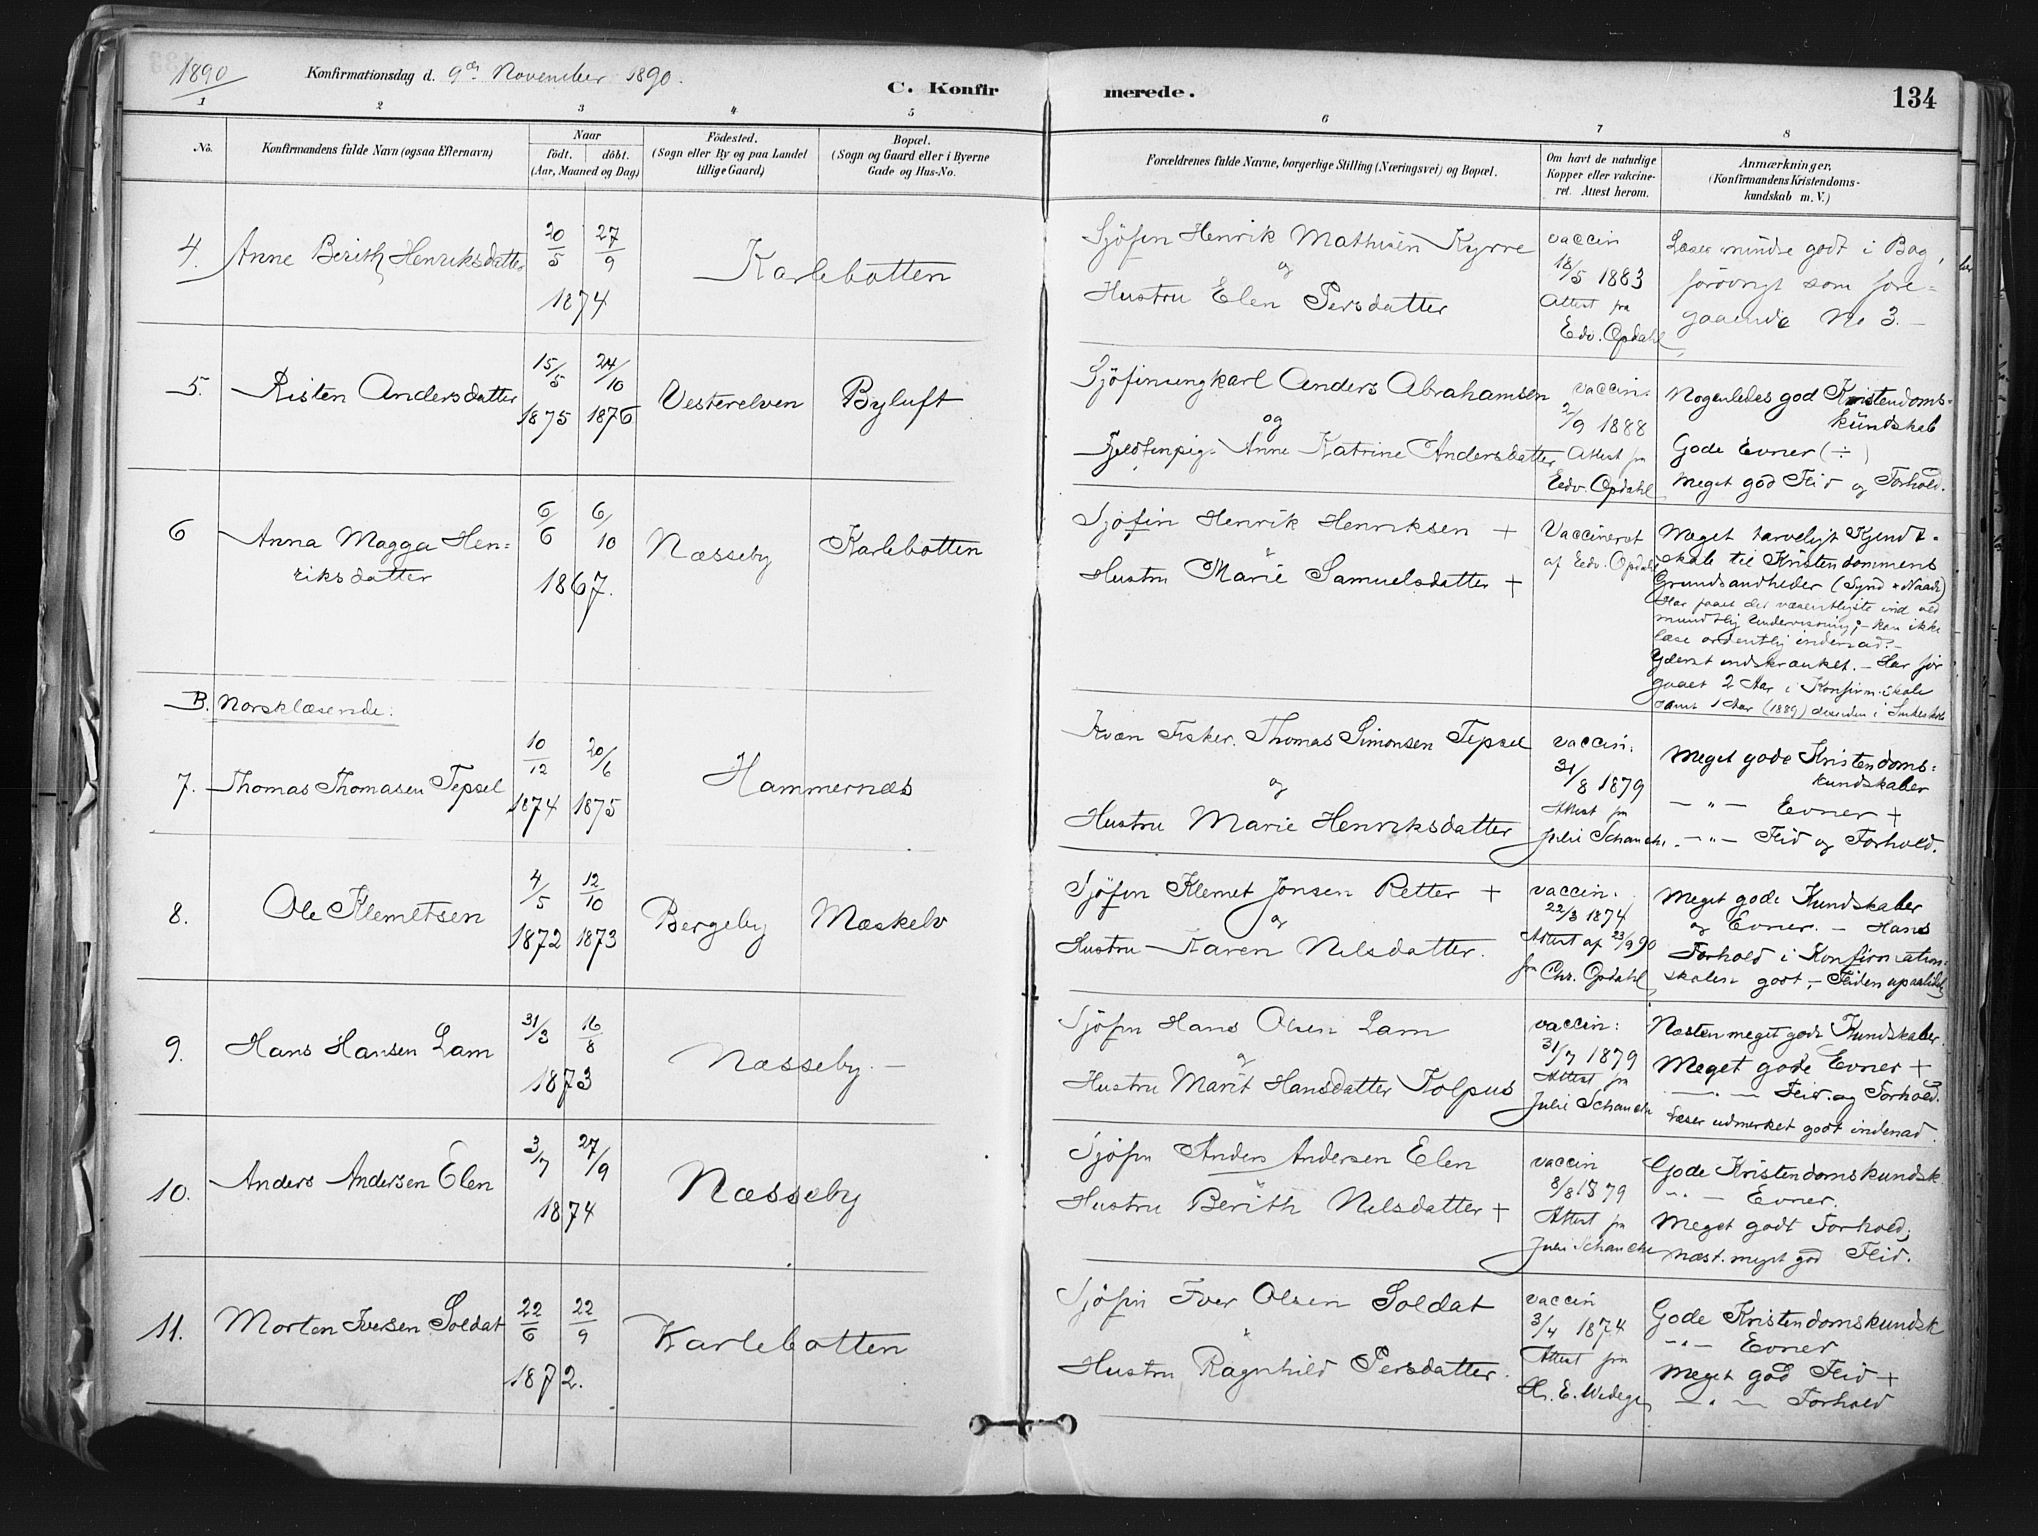 1890 Konfirmationsdag d. 9de November 1890. C. Konfirmerede. 134
1 2 3 4 5 6 7 8
No. Konfirmandens fulde Navn (ogsaa Efternavn)
Naar
födt. döbt.
(Aar, Maaned og Dag)
Födested.
(Sogn eller By og paa Landet
tillige Gaard)
Bopæl.
(Sogn og Gaard eller i Byerne
Gade og Hus-No.
Forældrenes fulde Navne, borgerlige Stilling (Næringsvei) og Bopæl.
Om havt de naturlige
Kopper eller vakcine-
ret. Attest herom.
Anmærkninger,
(Konfirmandens Kristendoms-
kundskab m. V.)
4. Anne Berith Henriksdatter
20/5 27/9
1874
Karlebotten
Sjöfin Henrik Mathisen Kyrre
og
Hustru Elen Persdatter
vaccin
18/5 1883
Attest fra
Edv. Opdahl
Læser mindre godt i Bog,
forövrigt som fore=
gaaende No 3. -
5. Risten Andersdatter
15/5 24/10
1875 1876
Vesterelven Byluft
Sjöfinungkarl Anders Abrahamsen
og
Fjeldfinpig. Anne Katrine Andersdatter
vaccin.
2/9 1888
Attest fra
Edv. Opdahl
Nogenledes god Kristendoms=
kundskab
Gode Evner (÷)
Meget god Flid og Forhold.
6 Anna Magga Hen=
riksdatter
6/6 6/10
1867.
Næsseby Karlebotten
Sjöfin Henrik Henriksen +
"
Hustru Marie Samuelsdatter +
Vaccineret
af Edv. Opdahl
Meget tarveligt Kjendt-
skab til Kristendommens
Grundsandheder (Synd + Naade)
Har faaet det væsentligste ind ved
mundtlig Undervisning; - kan ikke
læse ordentlig indenad. -
Yderst indskrænket. - Har för
gaaet 2 Aar i Konfirm. skole
samt 1 Aar (1889) desuden i
B. Norsklæsende:
7. Thomas Thomasen Tepsel
10/12 20/6
1874 1875
Hammernæs
Kvæn Fisker. Thomas Simonsen Tepsel
og
Hustru Marie Henriksdatter
vaccin:
31/8 1879
Attest fra
Julie Schanche.
Meget gode Kristendoms=
kundskaber
- " - Evner +
- " - Flid og Forhold.
8. Ole Klemetsen
4/5 12/10
1872 1873
Bergeby Mæskelv
Sjöfin Klemet Jonsen Retter +
og
Hustru Karen Nilsdatter.
vaccin:
22/3 1874
Attest af 23/9 90
fra Chr. Opdahl
Meget gode Kundskaber
og Evner. - Hans
Forhold i Konfirmations=
skolen godt, - Fliden upaalidelig
9. Hans Hansen Lam
31/3 16/8
1873
Næsseby. -
Sjöfin Hans Olsen Lam
og
Hustru Marit Hansdatter Kolpus
vaccin:
31/7 1879
Attest fra
Julie Schanche
Næsten meget gode Kundskaber.
Meget gode Evner +
- " - Flid og Forhold.
Læser udmerket godt indenad.
10. Anders Andersen Elen
3/7 27/9
1874
Næsseby
Sjöfin Anders Andersen Elen
"
Hustru Berith Nilsdatter +
vaccin
8/8 1879
Attest fra
Julie Schanche
Gode Kristendomskundsk
- " - Evner.
Meget godt Forhold;
næst. meget god Flid.
11. Morten Iversen Soldat
22/6 22/9
1872.
Karlebotten
Sjöfin Iver Olsen Soldat
"
Hustru Ragnhild Persdatter.
vaccin
3/4 1874
Attest fra
H. E. Wedege
Gode Kristendomskundsk
- " - Evner
Meget god Flid +
- " - Forhold